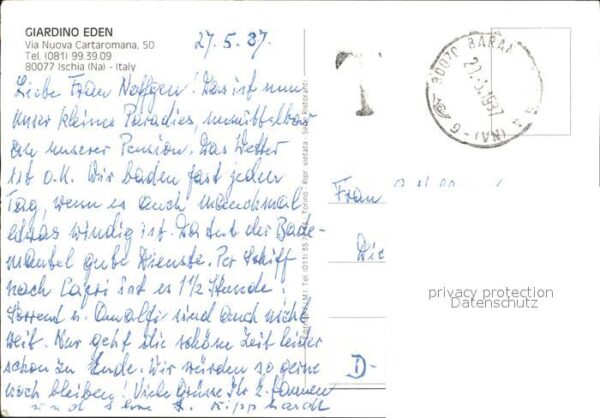 GIARDINO EDEN
Via Nuova Cartaromana, 50
Tel. (081) 99.39.09
80077 Ischia (Na) - Italy
27.5.87.
Liebe Frau Naffgen! Das ist nun
unser kleines Paradies, unmittelbar
an unserer Pension. Das Wetter
ist o.k. Wir baden fast jeden
Tag, wenn es auch manchmal
etwas windig ist. Da tut der Bade-
mantel gute Dienste. Per Schiff
nach Capri ist es 1 1/2 Stunde!
Sorrent u. Amalfi sind auch nicht
weit. Nur geht die schöne Zeit leider
schon zu Ende. Wir würden so gerne
noch bleiben! Viele Grüsse Ihr
und
T
80070 BARA
(NA)
Torino - Ripr. vietata
Frau
Die
D-
privacy protection
Datenschutz